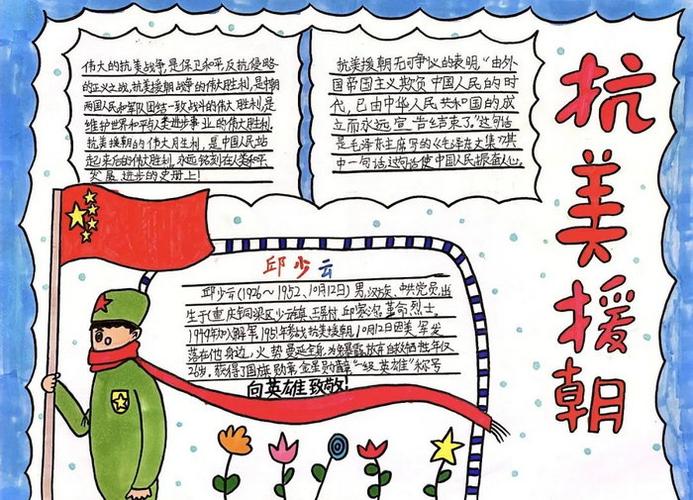 抗美援朝
伟大的抗美战争,是保卫和平反抗侵略
的正义之战,抗美援朝战争的伟大胜利,是中朝
两国人民和军队团结一致战斗的伟大胜利,是
维护世界和平与人类进步事业的伟大胜利.
抗美援朝的伟大胜利,是中国人民站
起来后的伟大胜利,永远铭刻在人类和平
发展 进步的史册上!
抗美援朝无可争议的表明,“由外
国帝国主义欺负中国人民的时
代,已由中华人民共和国的成
立而永远宣告结束了。”这句话
是毛泽东主席写的《毛泽东文集》其
中一句话,这句话使中国人民振奋人心。
邱少云
邱少云(1926~1952、10月12日)男,汉族、中共党员,出
生于(重庆铜梁区少云镇,玉屏村,邱家沟,革命烈士。
1949年加入解军,1951年参战抗美援朝,10月12日因美军发
落在他身边,火势蔓延全身,为免暴露,放弃自救牺牲,年仅
26岁,获得了国旗勋章,金星勋章“一级英雄”称号
向英雄致敬!